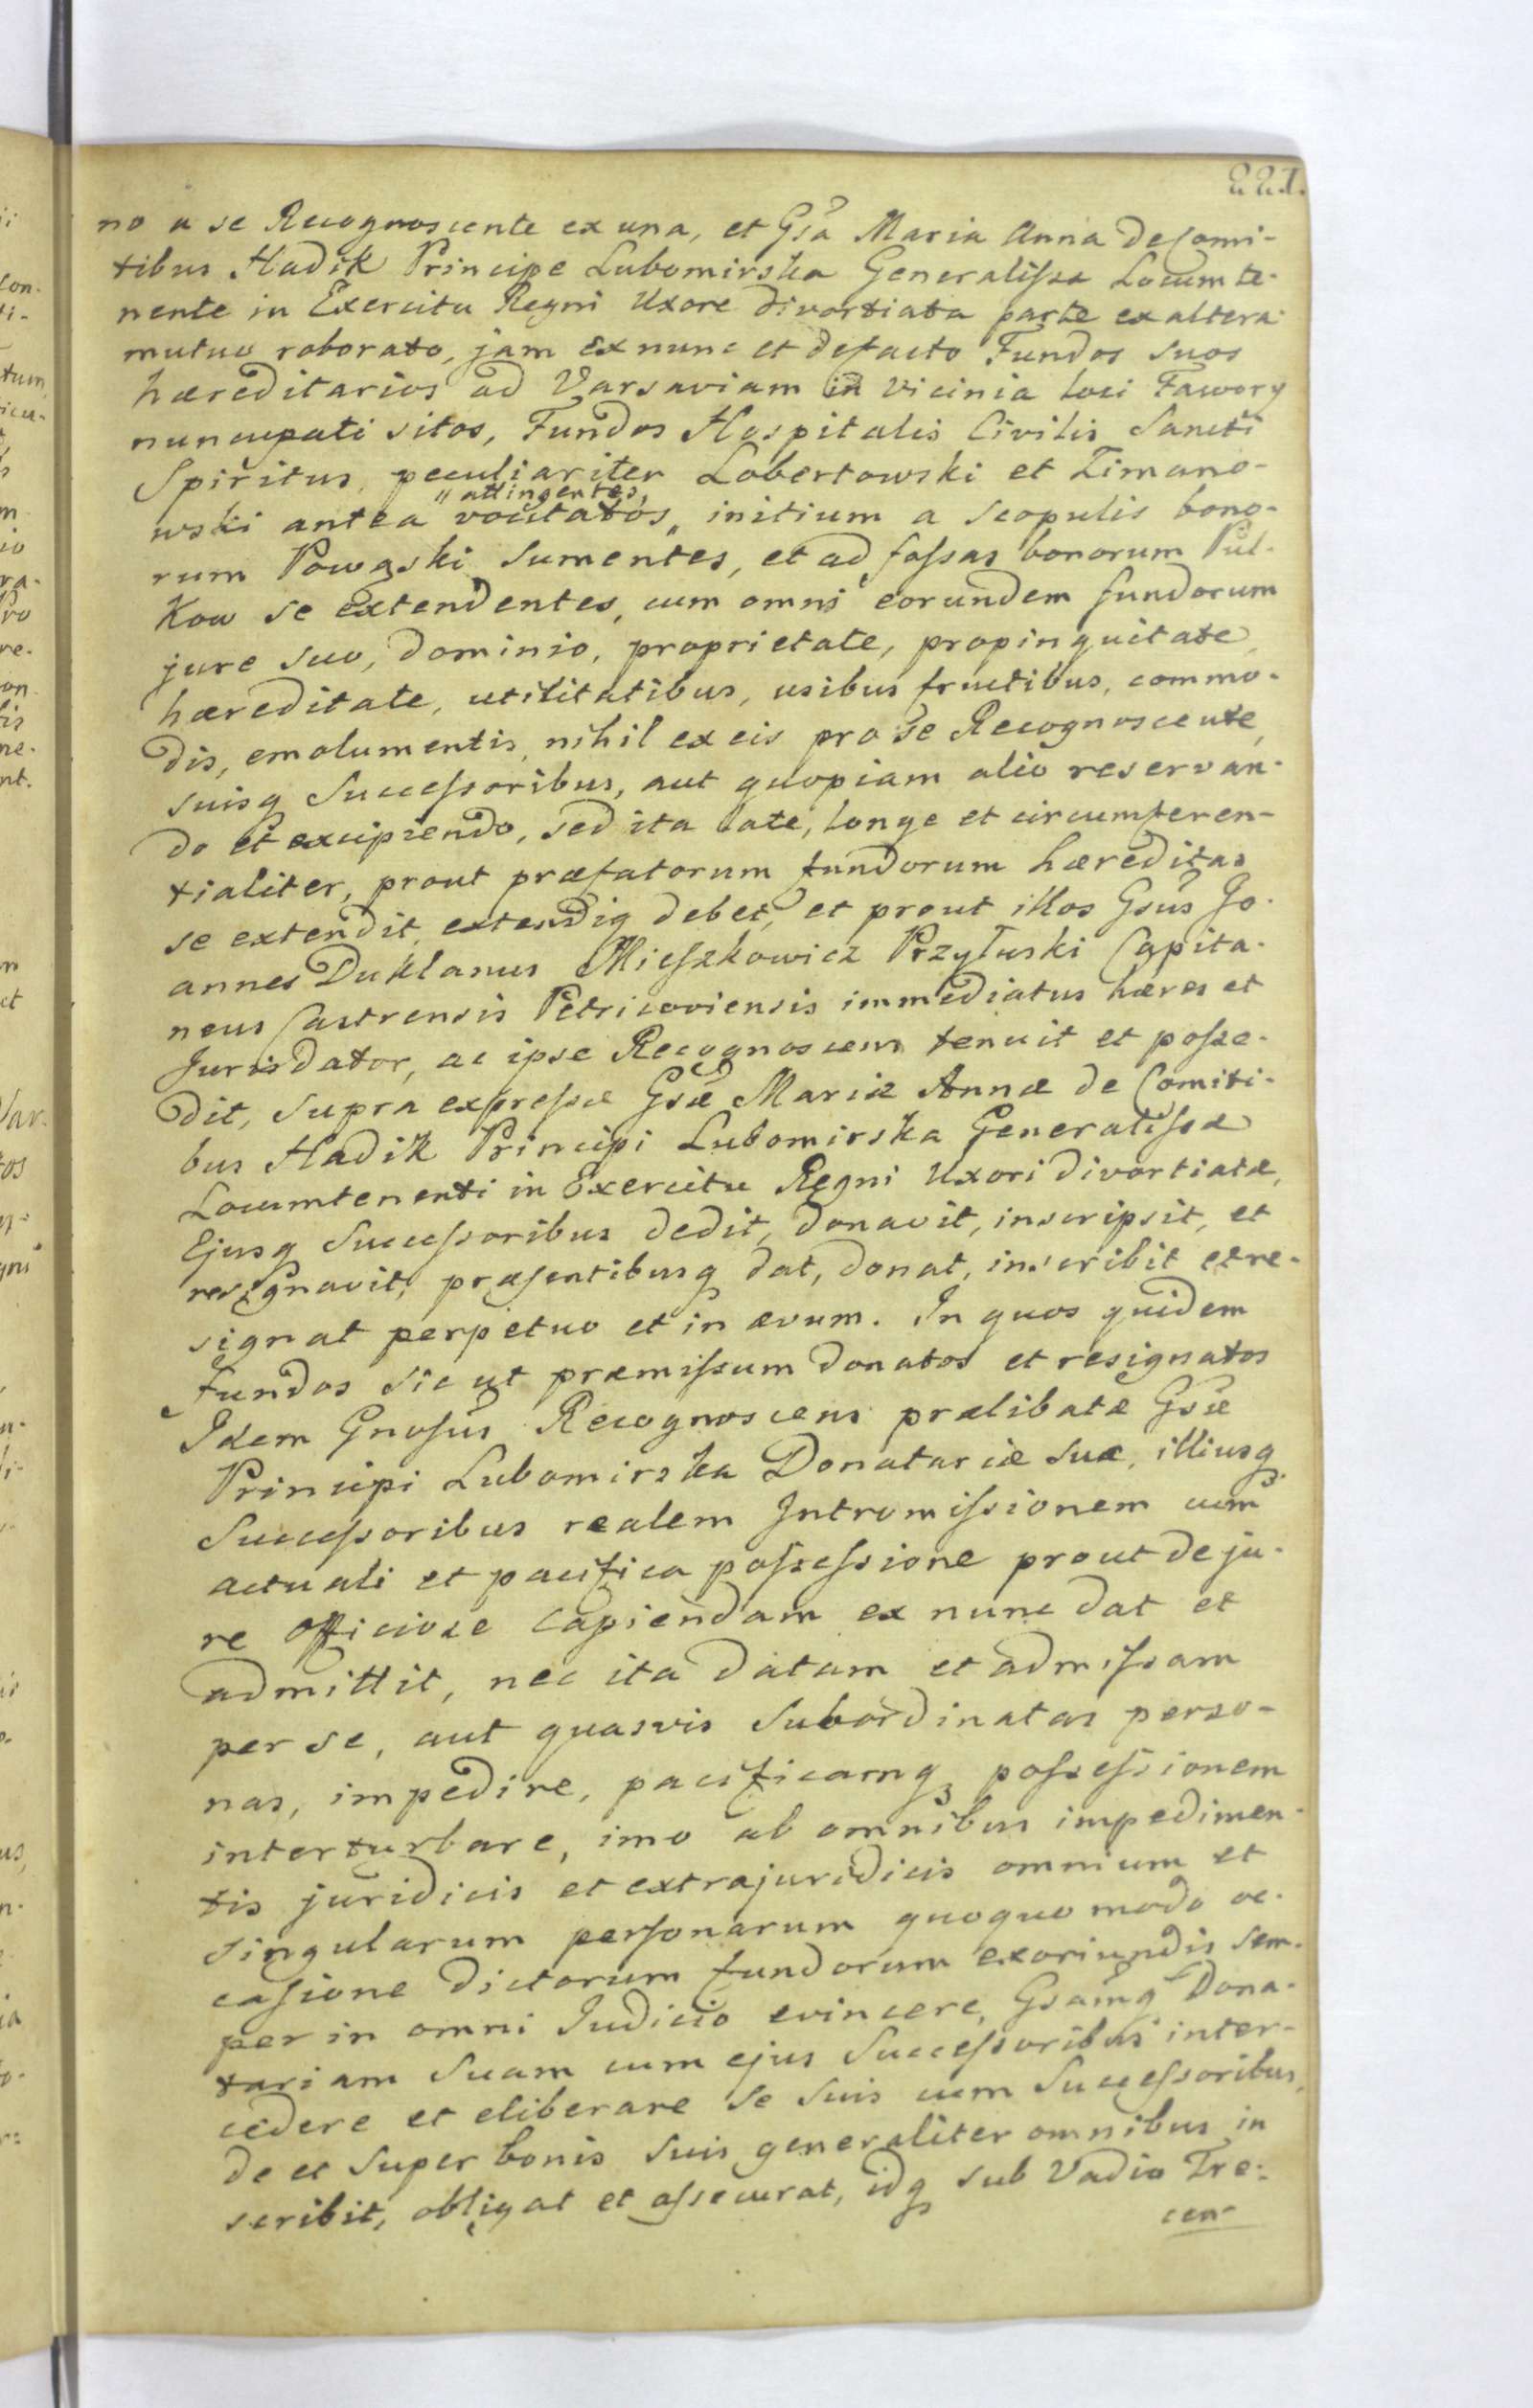 221.
no a se Recognoscente ex una, et Gsa Maria Anna de Comi-
tibus Hadik Principe Lubomirska Generalissa Locumte-
nente in Exercitu Regni Uxore divortiata parte ex altera
mutuo roborato, jam ex nunc et defacto Fundos suos
hæreditarios ad Varsaviam in vicinia loci Fawory
nuncupati sitos, Fundos Hospitalis Civilis Sancti
Spiritus, peculiariter Lobertowski et Timano-
"attingentes,
wski antea vocitatos " initium a Scopulis bono-
rum Powąski Sumentes, et ad fossas bonorum Pul-
kow se extendentes, cum omni eorundem fundorum
jure suo, dominio, proprietate, propinquitate,
hæreditate, utilitatibus, usibus fructibus, commo-
dis, emolumentis, nihil ex eis pro se Recognoscente,
suisq Successoribus, aut quopiam alio reservan-
do et excipiendo, sed ita late, longe et circumferen-
tialiter, prout præfatorum fundorum hæreditas
se extendit, extendiq debet, et prout illos Gsus Jo-
annes Duklanus Mieszkowicz Przyłuski Capita-
neus Castrensis Petricoviensis immediatus hæres et
Jurisdator, ac ipse Recognoscens tenuit et posse-
dit, supra expressæ Gsæ Mariæ Annæ de Comiti-
bus Hadik Principi Lubomirska Generalissæ
Locumtenenti in Exercitu Regni Uxori divortiatæ,
Ejusq Successoribus dedit, donavit, inscripsit, et
resignavit, præsentibusq dat, donat, inscribit et re-
signat perpetuo et in ævum. In quos quidem
Fundos sic ut præmissum donatos et resignatos
Idem Gnosus Recognoscens prælibatæ Gsæ
Principi Lubomirska Donatariæ suæ, illiusq
Successoribus realem Intromissionem cum
actuali et pacifica possessione prout de ju-
re officiose capiendam ex nunc dat et
admittit, nec ita datam et admissam
per se, aut quasvis Subordinatas perso-
nas, impedire, pacificamq possessionem
interturbare, imo ab omnibus impedimen-
tis juridicis et extrajuridicis omnium et
singularum personarum quoquo modo oc-
casione dictorum fundorum exoriundis sem-
per in omni Judicio evincere, Gsamq Dona-
tariam Suam cum ejus Successoribus inter-
cedere et eliberare se suis cum Successoribus,
de et super bonis suis generaliter omnibus in
scribit, obligat et assecurat, idq sub Vadio Tre-
cen-